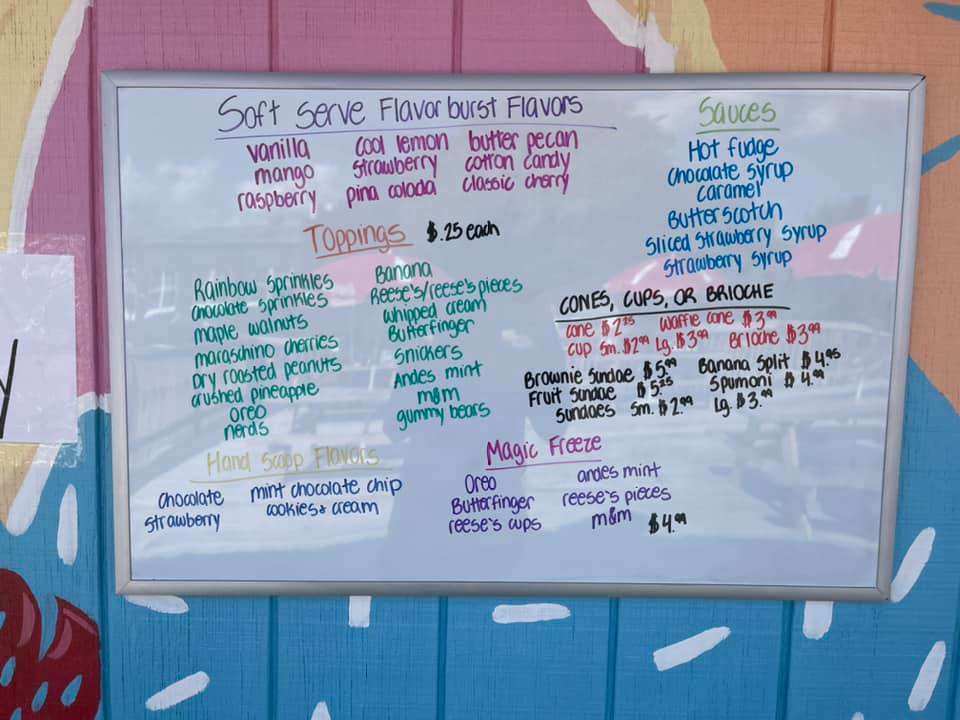 Soft Serve Flavor burst Flavors
vanilla cool lemon butter pecan
mango strawberry cotton candy
raspberry pina colada classic cherry
Sauces
Hot fudge
chocolate syrup
caramel
Butterscotch
Sliced Strawberry Syrup
Strawberry Syrup
Toppings $.25 each
Rainbow Sprinkles
chocolate sprinkles
maple walnuts
maraschino cherries
Dry roasted peanuts
crushed pineapple
oreo
nerds
Banana
Reese's/reese's pieces
whipped cream
Butterfinger
Snickers
Andes mint
m&m
gummy bears
CONES, CUPS, OR BRIOCHE
cone $2.25 waffle cone $3.99
cup Sm. $2.99 Lg. $3.99 Brioche $3.99
Brownie Sundae $5.99 Banana Split $4.95
Fruit Sundae $5.25 Spumoni $4.99
Sundaes Sm. $2.99 Lg. $3.99
Hand Scoop Flavors
chocolate mint chocolate chip
strawberry cookies & cream
Magic Freeze
Oreo andes mint
Butterfinger reese's pieces
reese's cups m&m $4.99
y